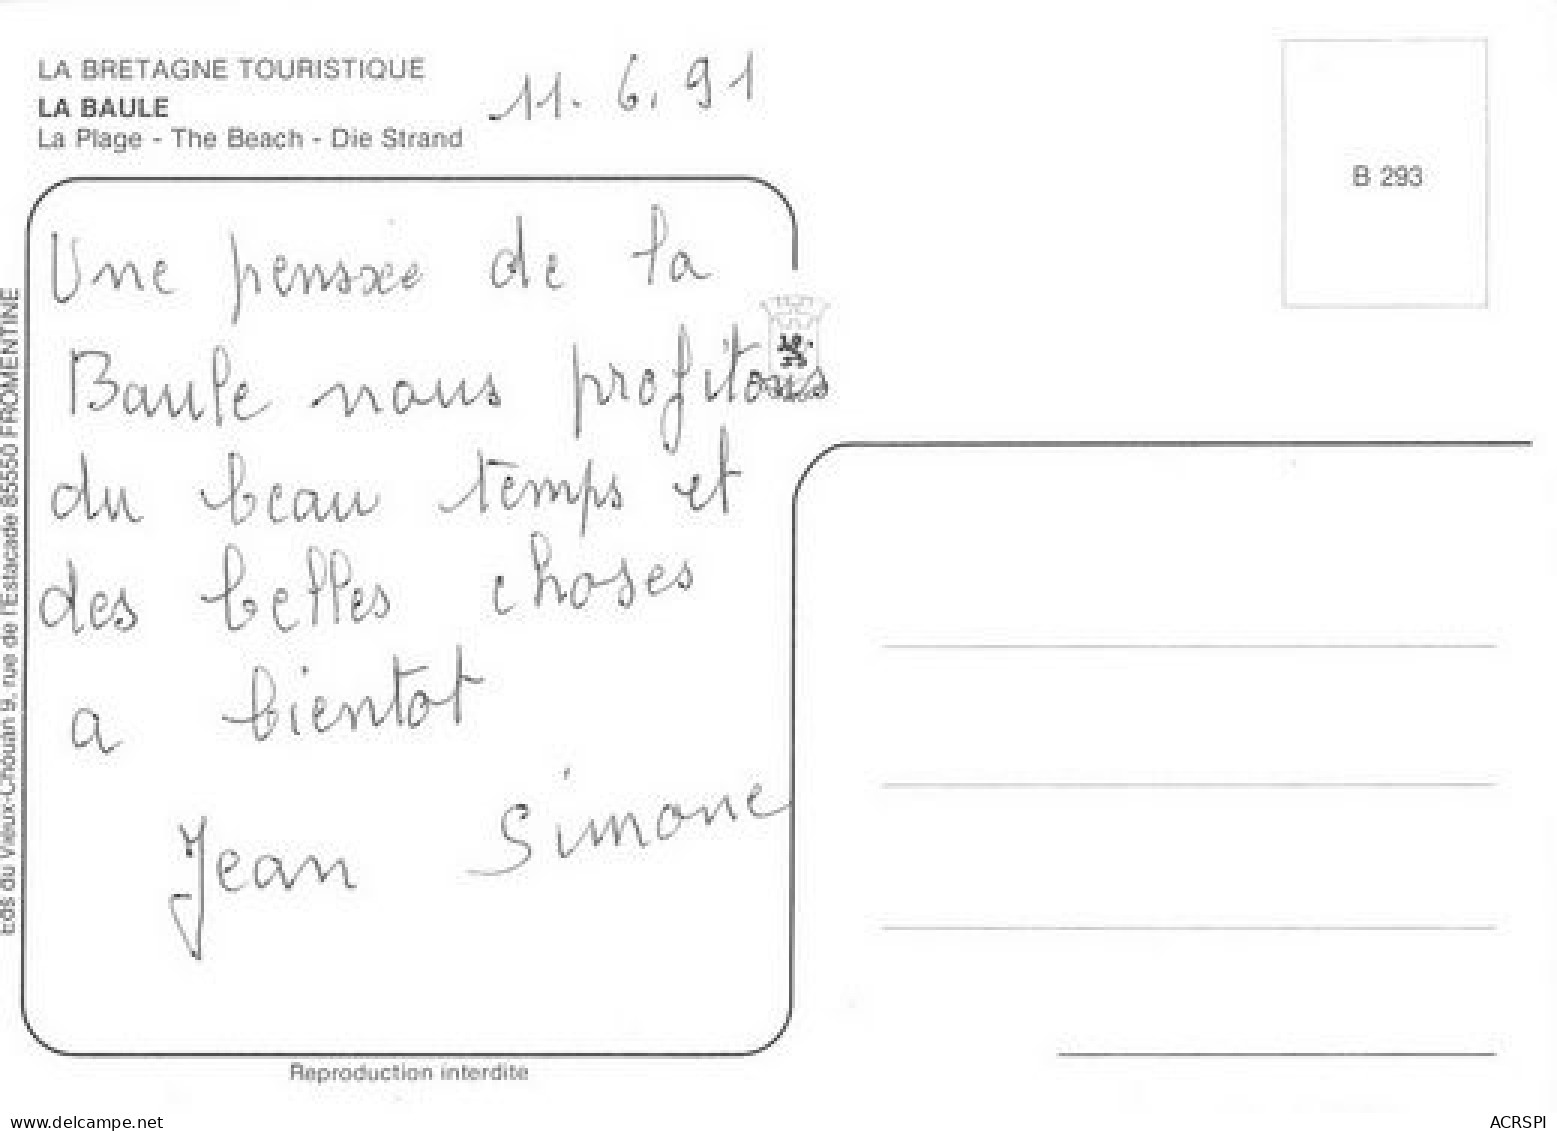 LA BRETAGNE TOURISTIQUE
LA BAULE
La Plage - The Beach - Die Strand
11. 6. 91
B 293
Une pensée de la
Baule nous profitons
du beau temps et
des belles choses
a bientot
Jean Simone
Eds du Vieux-Chouan 9, rue de l'Estacade 85550 FROMENTINE
Reproduction interdite
www.delcampe.net
ACRSPI